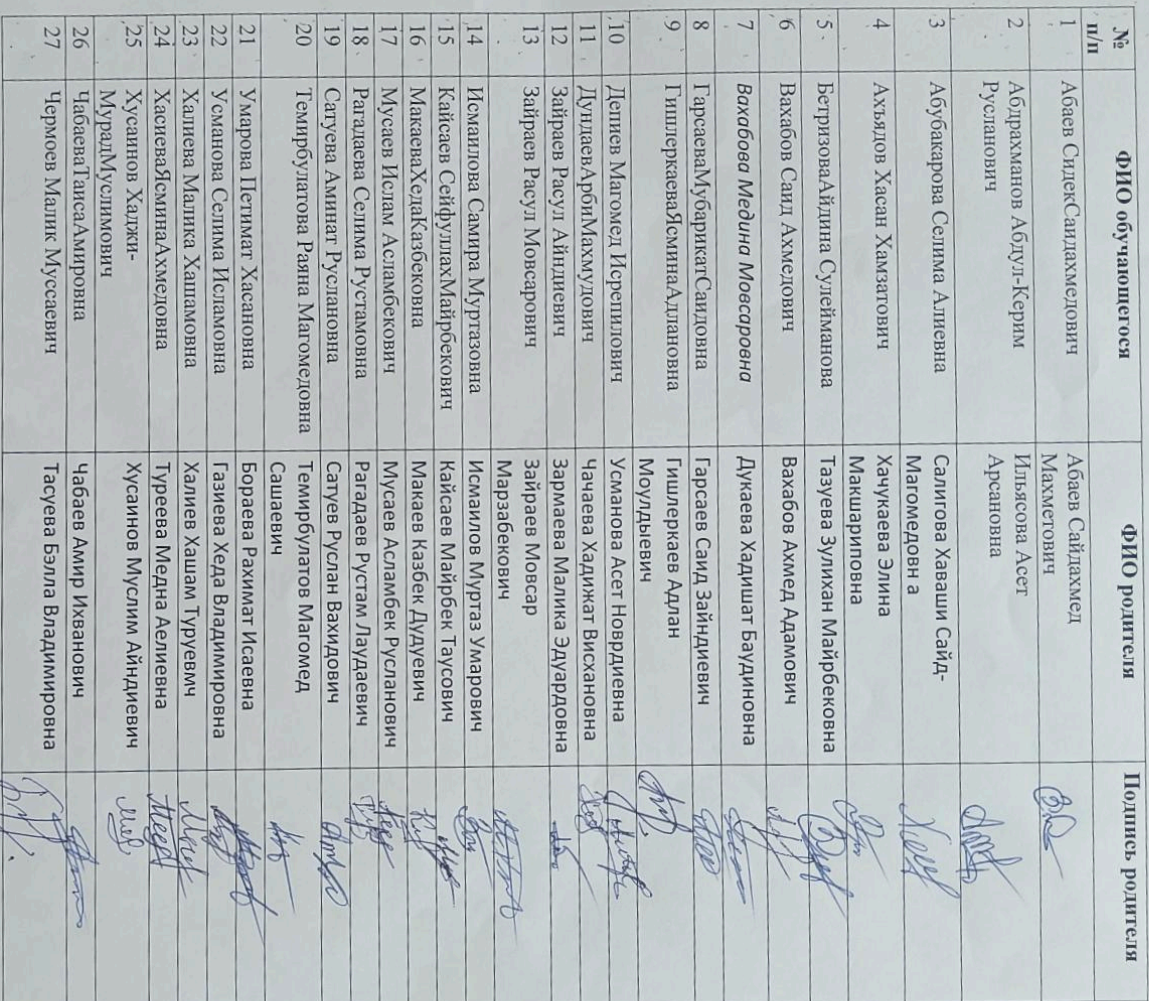 № п/п ФИО обучающегося ФИО родителя Подпись родителя
1 Абаев СидекСаидахмедович Абаев Сайдахмед
Махметович
2 Абдрахманов Абдул-Керим Ильясова Асет
Русланович Арсановна
3 Абубакарова Селима Алиевна Салигова Хаваши Сайд-
Магомедовн а
4 Ахъядов Хасан Хамзатович Хачукаева Элина
Макшариповна
5 БетризоваАйдина Сулейманова Тазуева Зулихан Майрбековна
6 Вахабов Саид Ахмедович Вахабов Ахмед Адамович
7 Вахабова Медина Мовсаровна Дукаева Хадишат Баудиновна
8 ГарсаеваМубарикатСаидовна Гарсаев Саид Зайндиевич
9 ГишлеркаеваЯсминаАдлановна Гишлеркаев Адлан
Моулдыевич
10 Депиев Магомед Исрепилович Усманова Асет Новрдиевна
11 ДундаевАрбиМахмудович Чачаева Хадижат Висхановна
12 Зайраев Расул Айндиевич Зармаева Малика Эдуардовна
13 Зайраев Расул Мовсарович Зайраев Мовсар
Марзабекович
14 Исмаилова Самира Муртазовна Исмаилов Муртаз Умарович
15 Кайсаев СейфуллахМайрбекович Кайсаев Майрбек Таусович
16 МакаеваХедаКазбековна Макаев Казбек Дудуевич
17 Мусаев Ислам Асламбекович Мусаев Асламбек Русланович
18 Рагадаева Селима Рустамовна Рагадаев Рустам Лаудаевич
19 Сатуева Аминат Руслановна Сатуев Руслан Вахидович
20 Темирбулатова Раяна Магомедовна Темирбулатов Магомед
Сашаевич
21 Умарова Петимат Хасановна Бораева Рахимат Исаевна
22 Усманова Селима Исламовна Газиева Хеда Владимировна
23 Халиева Малика Хашамовна Халиев Хашам Туруевмч
24 ХасиеваЯсминаАхмедовна Туреева Медна Аелиевна
25 Хусаинов Хаджи- Хусаинов Муслим Айндиевич
МурадМуслимович
26 ЧабаеваТаисаАмировна Чабаев Амир Ихванович
27 Чермоев Малик Муссаевич Тасуева Бэлла Владимировна